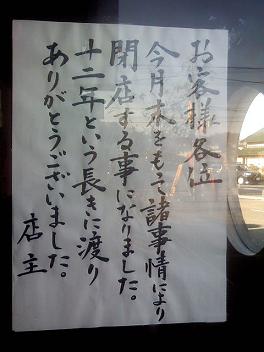 お客様各位
今月末をもって諸事情により
閉店する事になりました。
十二年という長きに渡り
ありがとうございました。
店主